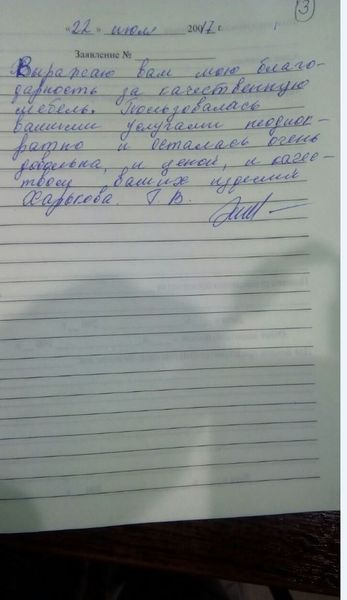 3
« 22 » июля 2017 г.
Заявление №
Выражаю вам мою благо-
дарность за качественную
мебель. Пользовалась
вашими услугами неоднок-
ратно и осталась очень
довольна, и ценой, и качес-
твом ваших изделий
Харькова. Г. В.